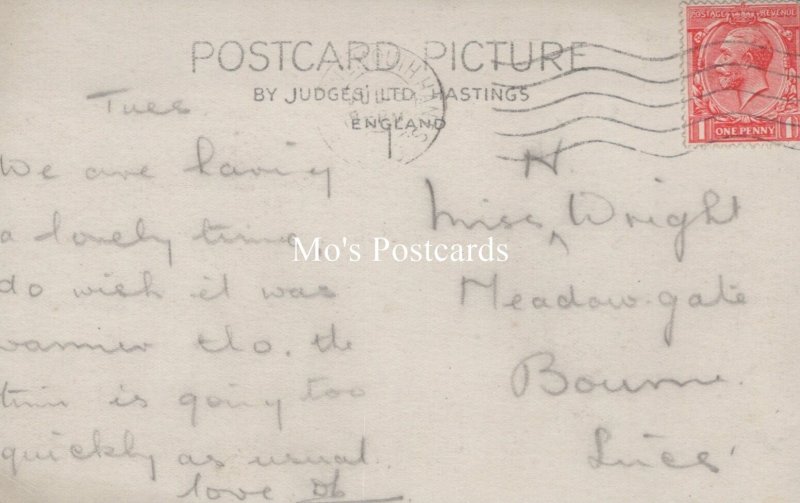 POSTCARD PICTURE
BY JUDGES LTD HASTINGS
ENGLAND
POSTAGE REVENUE
1 ONE PENNY 1
Tues
We are having
a lovely time,
do wish it was
warmer tho. the
time is going too
quickly as usual.
love
H
Miss ^ Wright
Meadow-gate
Bourne.
Lincs'
Mo's Postcards